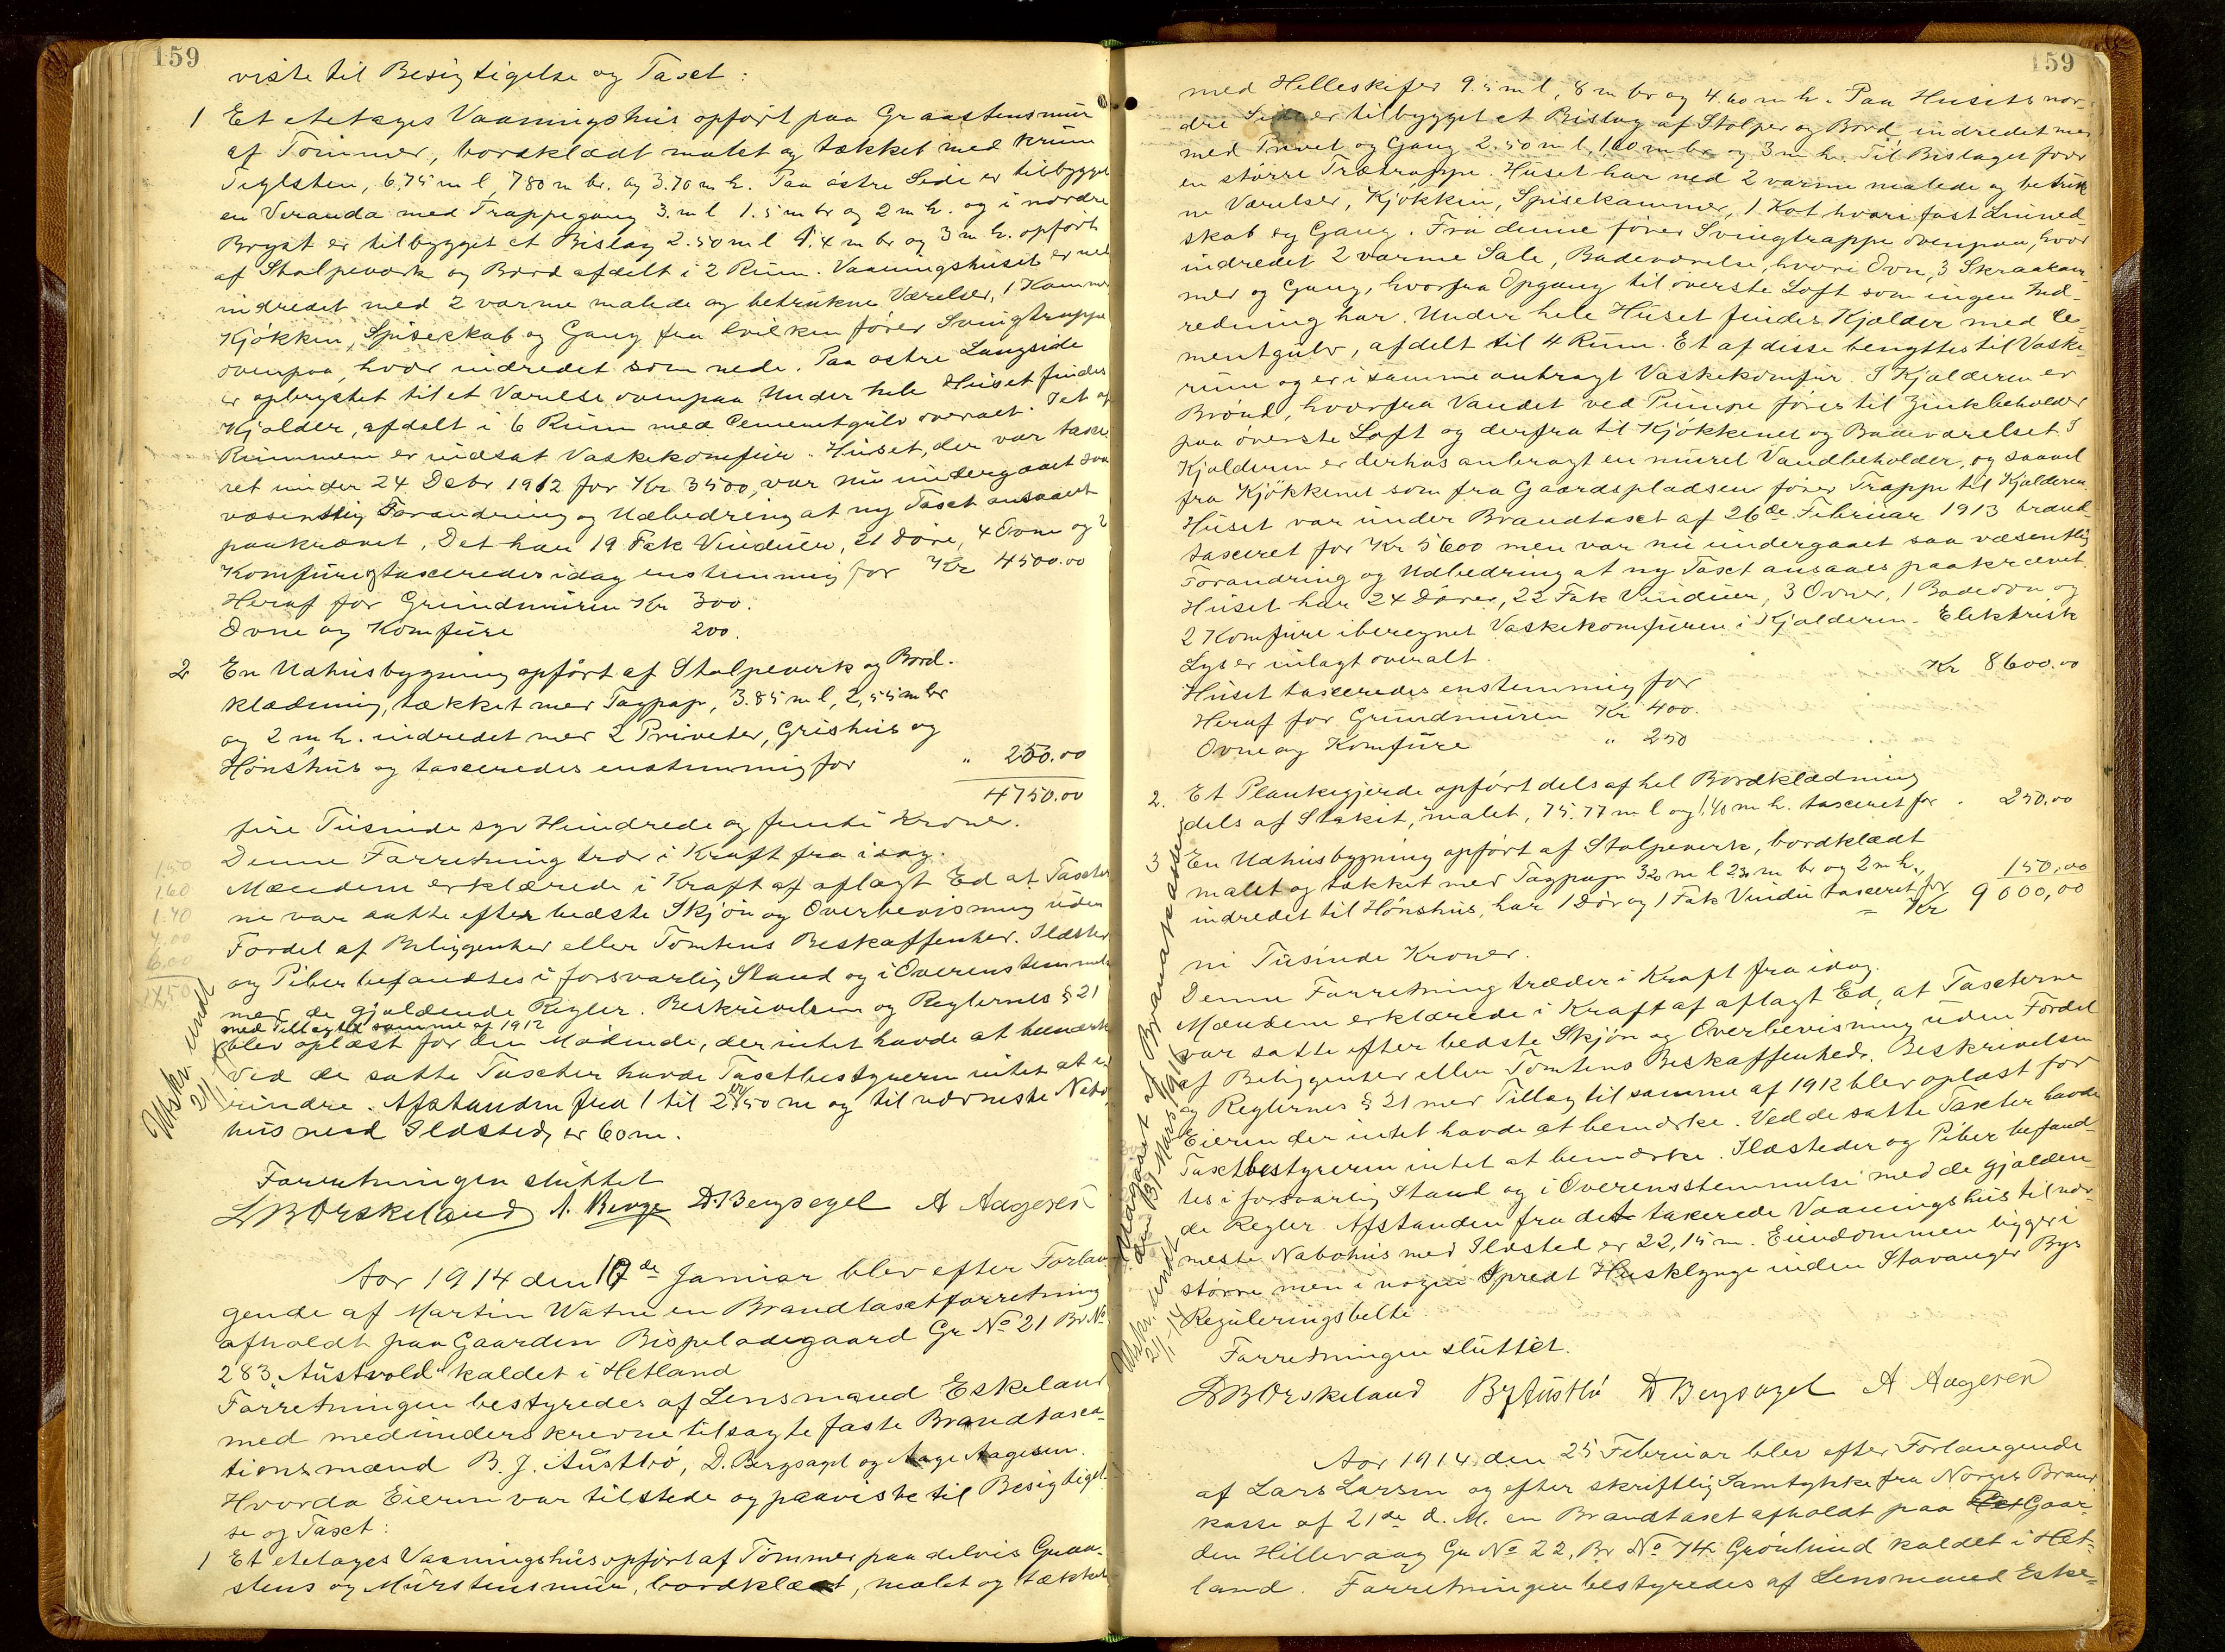 159
viste til Besigtigelse og Taxt:
1 Et etetages Vaaningshus opført paa Graastensmur
af Tømmer, bordklædt malet og tækket med krum
Teglsten, 6.75 m l 7.80 m br. og 3.70 m h. Paa østre Side er tilbygget
en Veranda med Trappegang 3. m l 1.5 m br og 2 m h. og i nordre
Bryst er tilbygget et Bislag 2.50 m l 1.4 m br og 3 m h. opført
af Stolpeværk og Bord afdelt i 2 Rum. Vaaningshuset er ned
indredet med 2 varme malede og betrukne Værelser, 1 Kammer
Kjøkken, Spiseskab og Gang fra hvilken fører Svingtrappe
ovenpaa, hvor indredet som nede. Paa østre Langside
er opbrystet til et Værelse ovenpaa. Under hele Huset findes
Kjælder, afdelt i 6 Rum med Cementgulv overalt. I et af
Rummene er indsat Vaskekomfur. Huset, der var taxe
ret under 24 Debr 1912 for Kr 3500, var nu undergaaet saa
væsentlig Forandring og Udbedring at ny Taxt ansaaes
paakrævet. Det har 19 Fak Vinduer, 21 Døre, 4 Ovne og 2
Komfure og taxeredes idag enstemmig for Kr 4500.00
Heraf for Grundmuren Kr 300.
Ovne og Komfure 200.
2 En Udhusbygning opført af Stolpeverk og Bord-
klædning, tækket med Tagpap, 3.85 m l, 2,55 m br
og 2 m h. indredet med 2 Priveter, Grishus og
Hønshus og taxeredes enstemmig for " 250.00
4750.00
fire Tusinde syv Hundrede og femti Kroner.
Denne Forretning træer i Kraft fra idag.
Mændene erklærede i Kraft af aflagt Ed at Taxter
ne var satte efter bedste Skjøn og Overbevisning uden
Fordel af Beliggenhed eller Tomtens Beskaffenhed. Ildsteder
og Piber befandtes i forsvarlig Stand og i Overenstemmelse
med de gjældende Regler. Beskrivelsen og Reglernes § 21
med Tillæg til samme af 1912
blev oplæst for den Mødende, der intet havde at bemærke
Ved de satte Taxter havde Taxtbestyreren intet at e
rindre. Afstanden fra 1 til 2 er 50 m og til nærmeste Nabo
hus med Ildsted er 60 m.
Forretningen sluttet
LBOrskeland A. Berge D. Bergsagel A Aagesen
1.50
1.60
1.40
4.00
6.00
14.50
Utskr. sendt
21/1-14
Aar 1914 den 17de Januar blev efter Forlan
gende af Martin Watne en Brandtaxtforretning
afholdt paa Gaarden Bispeladegaard Gr No 21 Br No
283 "Austvold" kaldet i Hetland
Forretningen bestyredes af Lensmand Eskeland
med medunderskrevne tilsagte faste Brandtaxa-
tionsmænd B. J. Austbø, D. Bergsagel og Aage Aagesen.
Hvorda Eieren var tilstede og paaviste til Besigtigel-
se og Taxt:
1 Et etetages Vaaningshus opført af Tømmer paa delvis Graa-
stens og Murstensmur, bordklædt, malet og tækket
159
med Helleskifer 9.5 m l, 8 m br og 4.60 m h. Paa Husets nor-
dre Side er tilbygget et Bislag af Stolper og Bord indredet med
med Privet og Gang 2.50 m l, 1,60 m br og 3 m h. Til Bislaget fører
en større Trætrappe. Huset har ned 2 varme malede og betruk
ne Værelser, Kjøkken, Spisekammer, 1 Kot hvori fast Linned-
skab og Gang. Fra denne fører Svingtrappe ovenpaa, hvor
indredet 2 varme Sale, Badeværelse, hvori Ovn, 3 Skraakam-
mer og Gang, hvorfra Opgang til øverste Loft som ingen Ind-
redning har. Under hele Huset findes Kjælder med Ce-
mentgulv, afdelt til 4 Rum. Et af disse benyttes til Vaske
rum og er i samme anbragt Vaskekomfur. I Kjælderen er
Brønd, hvorfra Vandet ved Pumpe føres til Zinkbeholder
paa øverste Loft og derfra til Kjøkkenet og Badeværelset. I
Kjælderen er derhos anbragt en muret Vandbeholder, og saavel
fra Kjøkkenet som fra Gaardspladsen fører Trappe til Kjælderen
Huset var under Brandtaxt af 26de Februar 1913 brand-
taxeret for Kr 5600 men var nu undergaaet saa væsentlig
Forandring og Udbedring at ny Taxt ansaaes paakrævet.
Huset har 24 Døre, 22 Fak Vinduer, 3 Ovner, 1 Badeovn og
2 Komfure iberegnet Vaskekomfuren i Kjælderen. Elektrisk
Lys er inlagt overalt.
Huset taxeredes enstemmig for Kr 8600.00
Heraf for Grundmuren Kr 400.
Ovne og Komfure " 250
2. Et Plankegjerde opført dels af hel Bordklædning
dels af Stakit, malet, 75.77 m l og 1,40 m h. taxeret for 250.00
3 En Udhusbygning opført af Stolpeverk, bordklædt
malet og tækket med Tagpap 3.20 m l 2.30 m br og 2 m h,
indredet til Hønshus, har 1 Dør og 1 Fak Vindu taxeret for 150,00
Kr 9000,00
ni Tusinde Kroner.
Denne Forretning træder i Kraft fra idag.
Mændene erklærede i Kraft af aflagt Ed, at Taxterne
var satte efter bedste Skjøn og Overbevisning uden Fordel
af Beliggenhed eller Tomtens Beskaffenhed. Beskrivelsen
og Reglernes § 21 med Tillæg til samme af 1912 blev oplæst for
Eieren der intet havde at bemærke. Ved de satte Taxter havde
Taxtbestyreren intet at bemærke. Ildsteder og Piber befand-
tes i forsvarlig Stand og i Overensstemmelse med de gjælden
de Regler. Afstanden fra det takerede Vaaningshus til nær-
meste Nabohus med Ildsted er 22,15 m. Eiendommen ligger i
større men i nogen Spredt Husklynge inden Stavanger Bys
Reguleringsbelte.
Forretningen sluttet.
LBOrskeland BJAustbø D Bergsagel A Aagesen
Udgaaet af Brandkassen
den 31 Marts 1916
Utskr. sendt
21/1-14
Aar 1914 den 25 Februar blev efter Forlangende
af Lars Larsen og efter skriftlig Samtykke fra Norges Brand
kasse af 21de d. M. en Brandtaxt afholdt paa Gaar-
den Hillevaag Gr No 22, Br No 74 Grønlund kaldet i Het-
land. Forretningen bestyredes af Lensmand Eske-